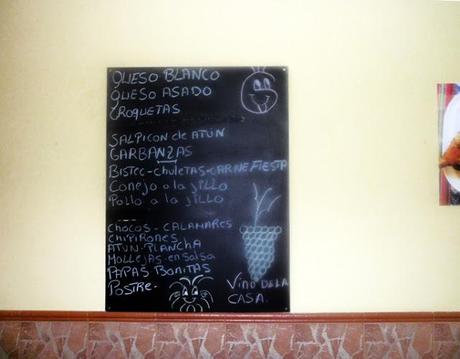 QUESO BLANCO
QUESO ASADO
CROQUETAS
SALPICON de ATUN
GARBANZAS
BISTEC-chuletas-CARNE FIESTA
Conejo a la jillo
Pollo a la jillo
CHOCOS - CALAMARES
CHIPIRONES
ATUN-PLANCHA
MOLLEJAS-en SALSA
PAPAS BONITAS
POSTRE-
VINO DE LA
CASA.